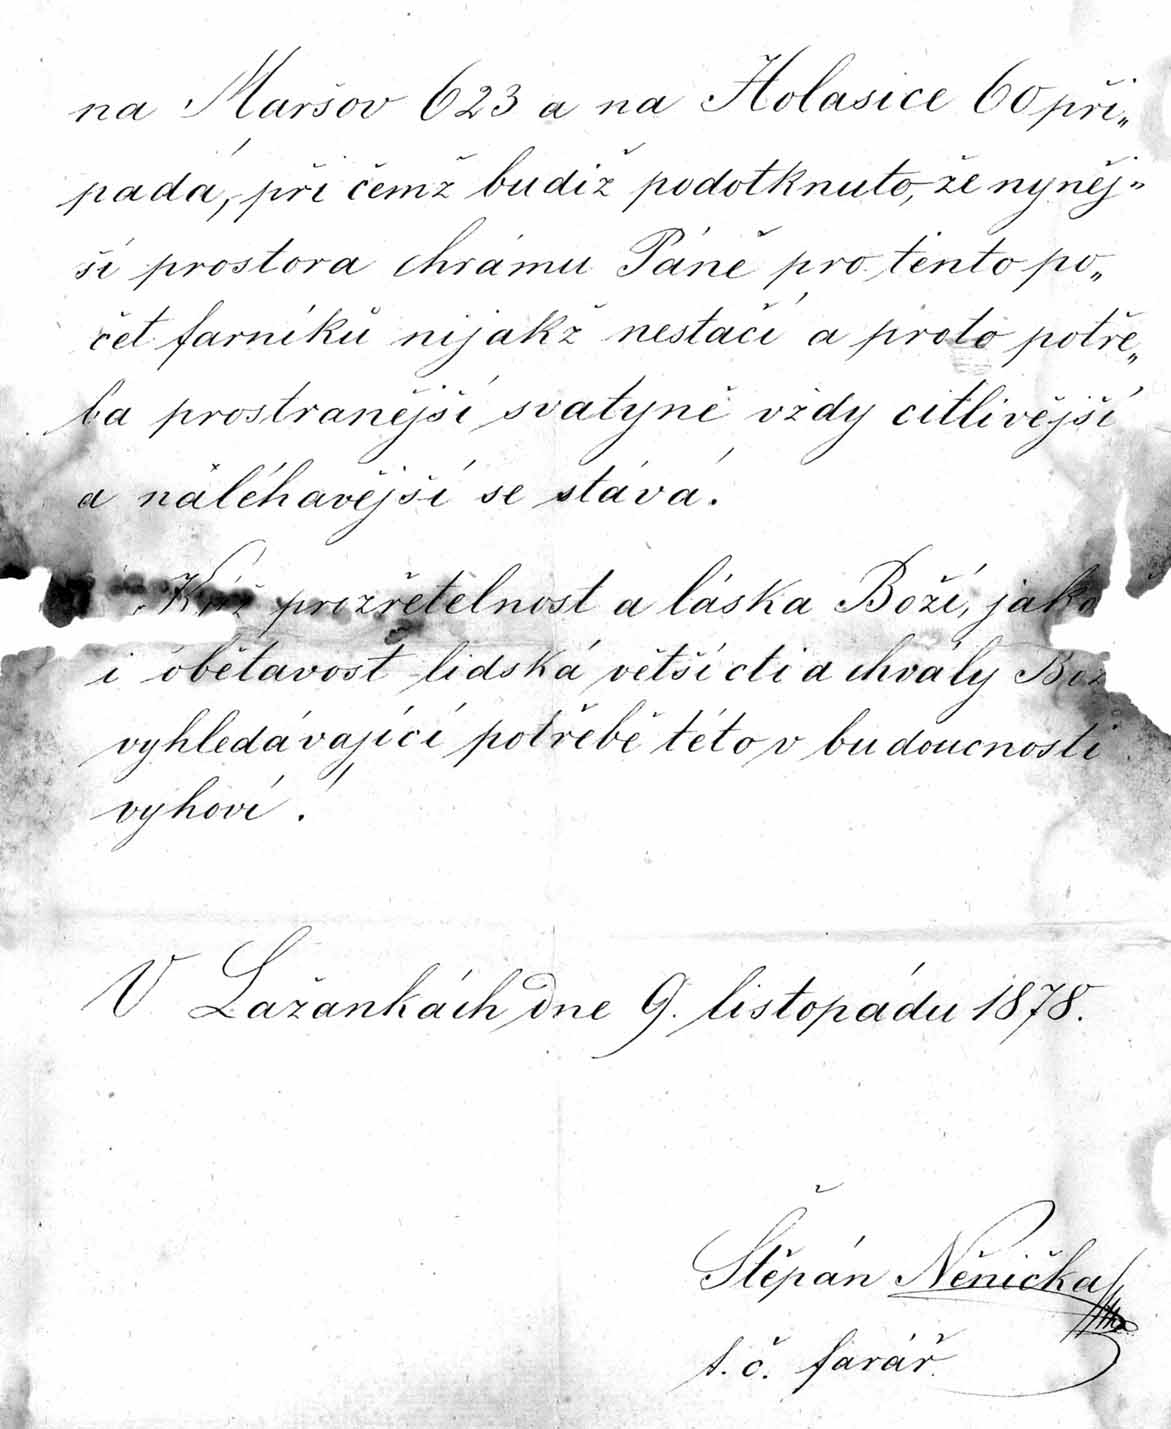 na Maršov 623 a na Holasice 60 při„
padá, při čemž budiž podotknuto, že nyněj„
ší prostora chrámu Páně pro tento po„
čet farníků nijakž nestačí a proto potře„
ba prostranější svatyně vždy citlivější
a naléhavější se stává.
Kéž prozřetelnost a láska Boží, jako
i obětavost lidská větší cti a chvály Bož
vyhledávající potřebě této v budoucnosti
vyhoví!
V Lažankách dne 9. listopádu 1878.
Štěpán Něnička
t. č. farář.